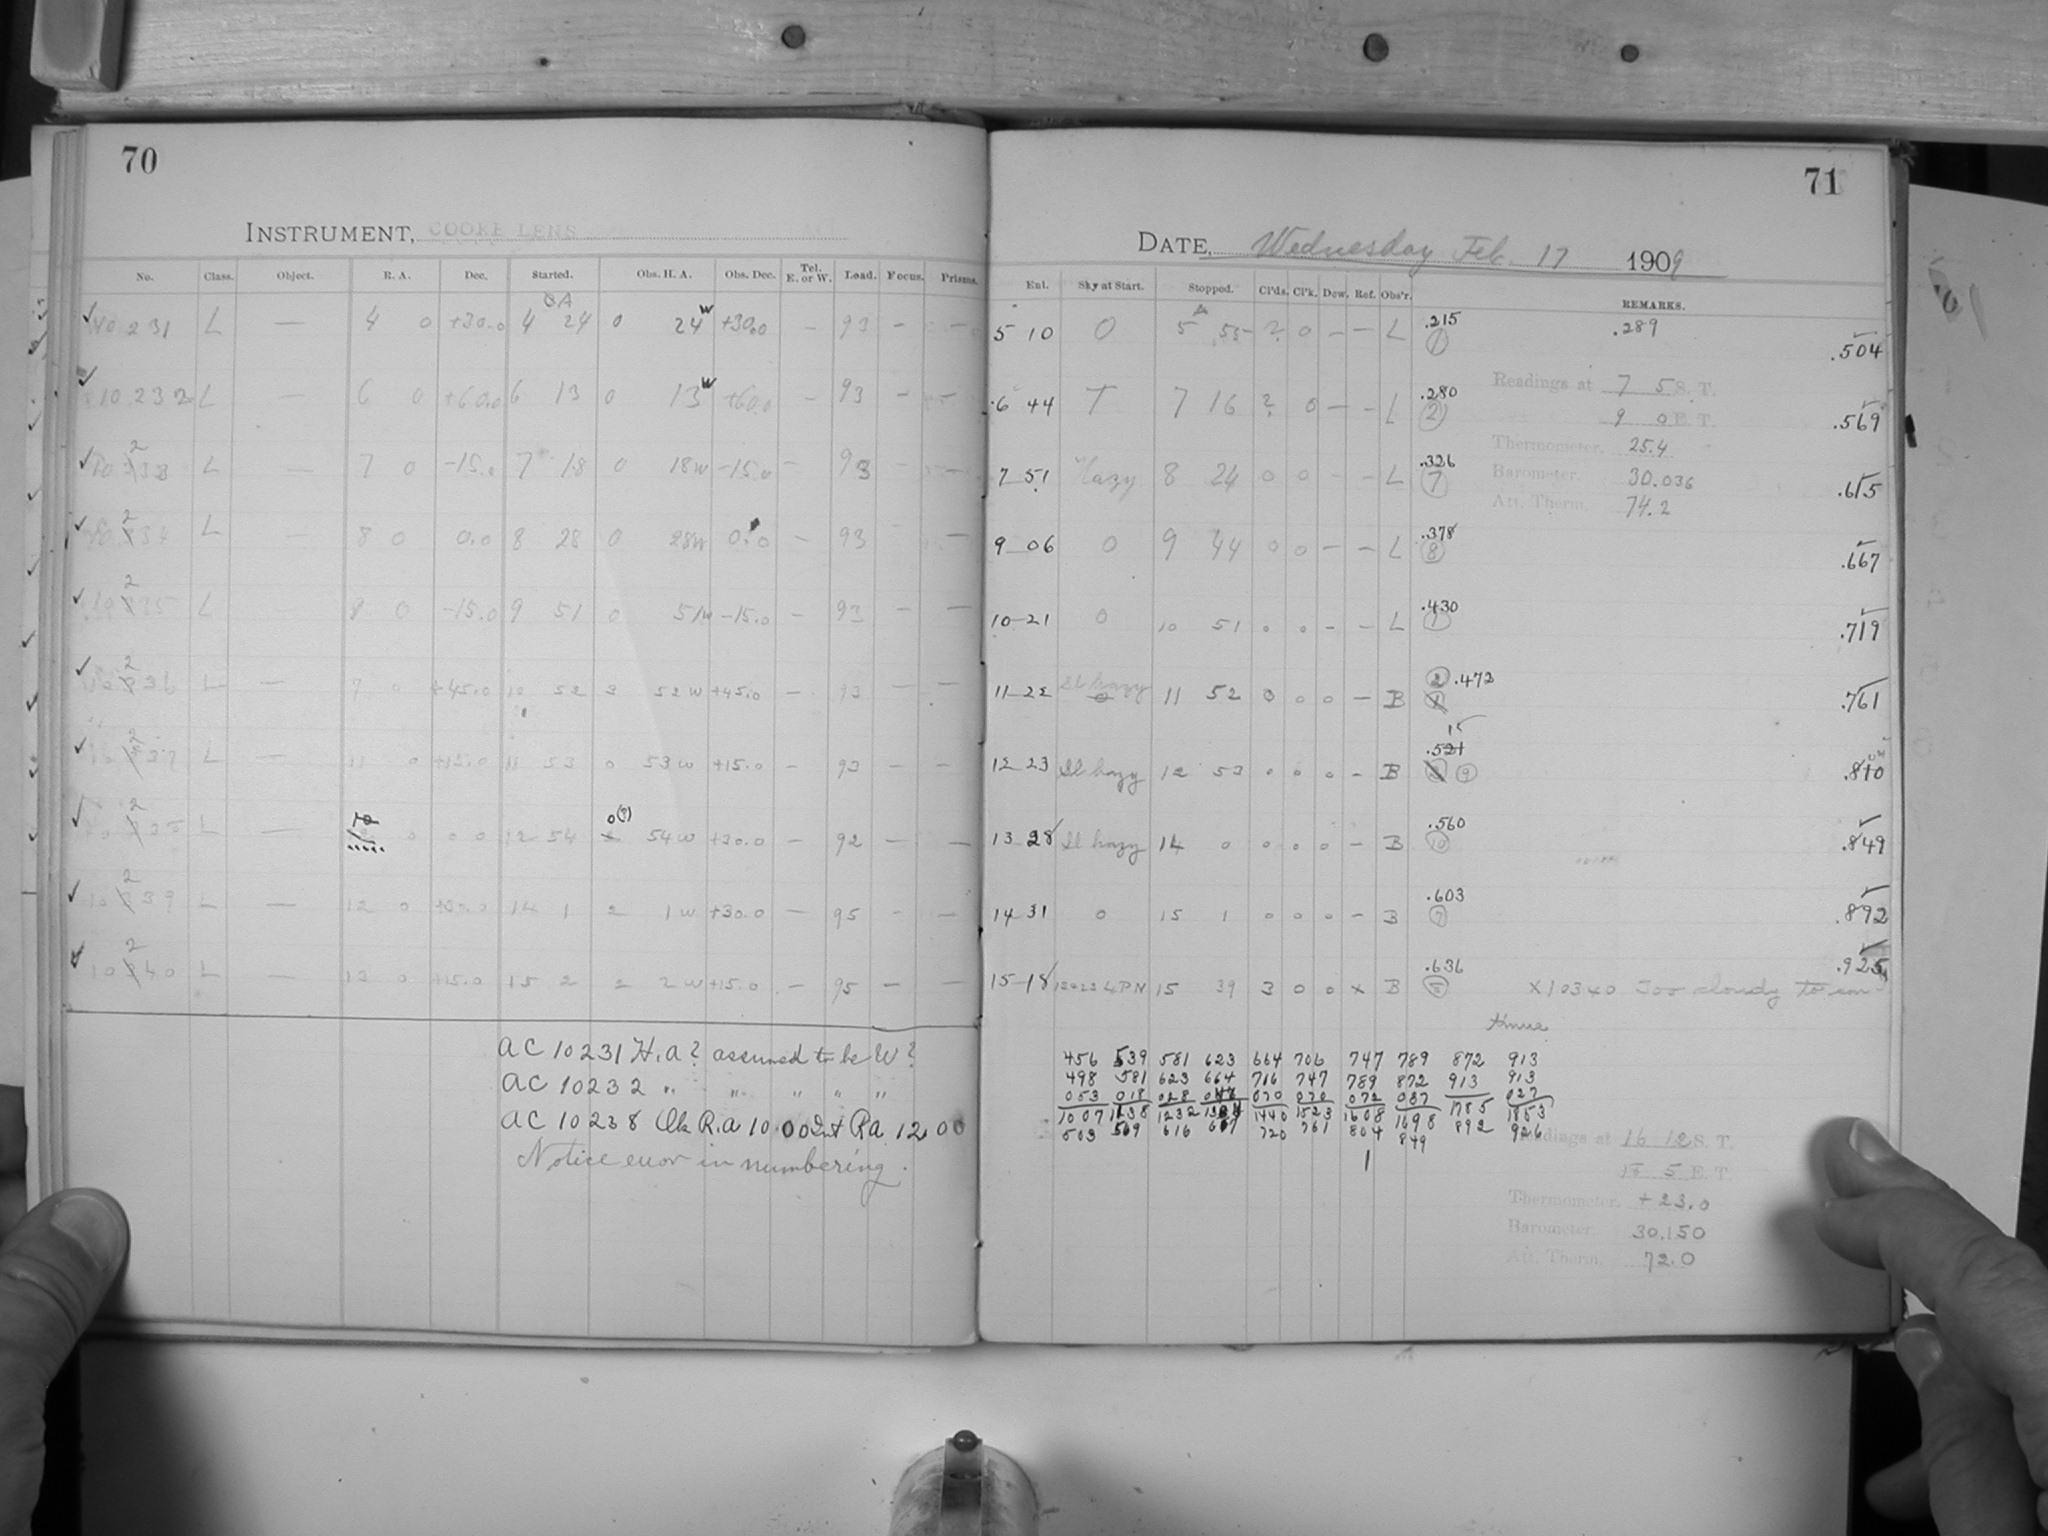 70
INSTRUMENT, COOKE LENS
No. Class. Object. R. A. Dec. Started. Obs. H. A. Obs. Dec. Tel. E. or W. Load. Focus. Prisms.
10231 L — 4 0 +30.0 4 24 0 24 W +30.0 — 93 — —
10232 L — 6 0 +60.0 6 13 0 13 W +60.0 — 93 — —
10 2 33 L — 7 0 -15.0 7 18 0 18 W -15.0 — 93 — —
10 2 34 L — 8 0 0.0 8 28 0 28 W 0.0 — 93 — —
10 2 35 L — 8 0 -15.0 9 51 0 51 W -15.0 — 93 — —
10 2 36 L — 7 0 +45.0 10 52 3 52 W +45.0 — 93 — —
10 2 37 L — 11 0 +15.0 11 53 0 53 W +15.0 — 93 — —
10 2 38 L — 10 0 0 0 12 54 0(?) 54 W +30.0 — 92 — —
10 2 39 L — 12 0 +30.0 14 1 2 1 W +30.0 — 95 — —
10 2 40 L — 13 0 +15.0 15 2 2 2 W +15.0 — 95 — —
AC 10231 H.A? assumed to be W?
AC 10232 " " " " "
AC 10238 Ok R.a 10.00 Int Ra 12.00
Notice error in numbering.
71
DATE, Wednesday Feb. 17 1909
Ent. Sky at Start. Stopped. Cl'ds. Cl'k. Dew. Ref. Obs'r. REMARKS.
5 10 0 5 55 ? 0 — — L .215 1 .289 .504
6 44 T 7 16 ? 0 — — L .280 2 .569
Readings at 7 5 S. T.
9 0 E. T.
Thermometer. 25.4
7 51 Hazy 8 24 0 0 — — L .326 7 .615
Barometer. 30.036
Att. Therm. 74.2
9 06 0 9 44 0 0 — — L .378 8 .667
10 21 0 10 51 0 0 — — L .430 1 .719
11 22 Sl hazy 11 52 0 0 0 — B 2 .472 .761
12 23 Sl hazy 12 53 0 0 0 — B .521 9 .810
13 28 Sl hazy 14 0 0 0 0 — B .560 10 .849
14 31 0 15 1 0 0 0 — B .603 7 .892
15 18 15 39 3 0 0 x B .636 .925
x10340 Too cloudy to con-
tinue
456 539 581 623 664 706 747 789 872 913
498 581 623 664 716 747 789 872 913 913
053 018 028 070 070 072 037 027
1007 1138 1232 1440 1523 1608 1698 1785 1853
503 569 616 667 720 761 804 849 892 926
Readings at 16 12 S. T.
18 5 E. T.
Thermometer. +23.0
Barometer 30.150
Att. Therm. 72.0